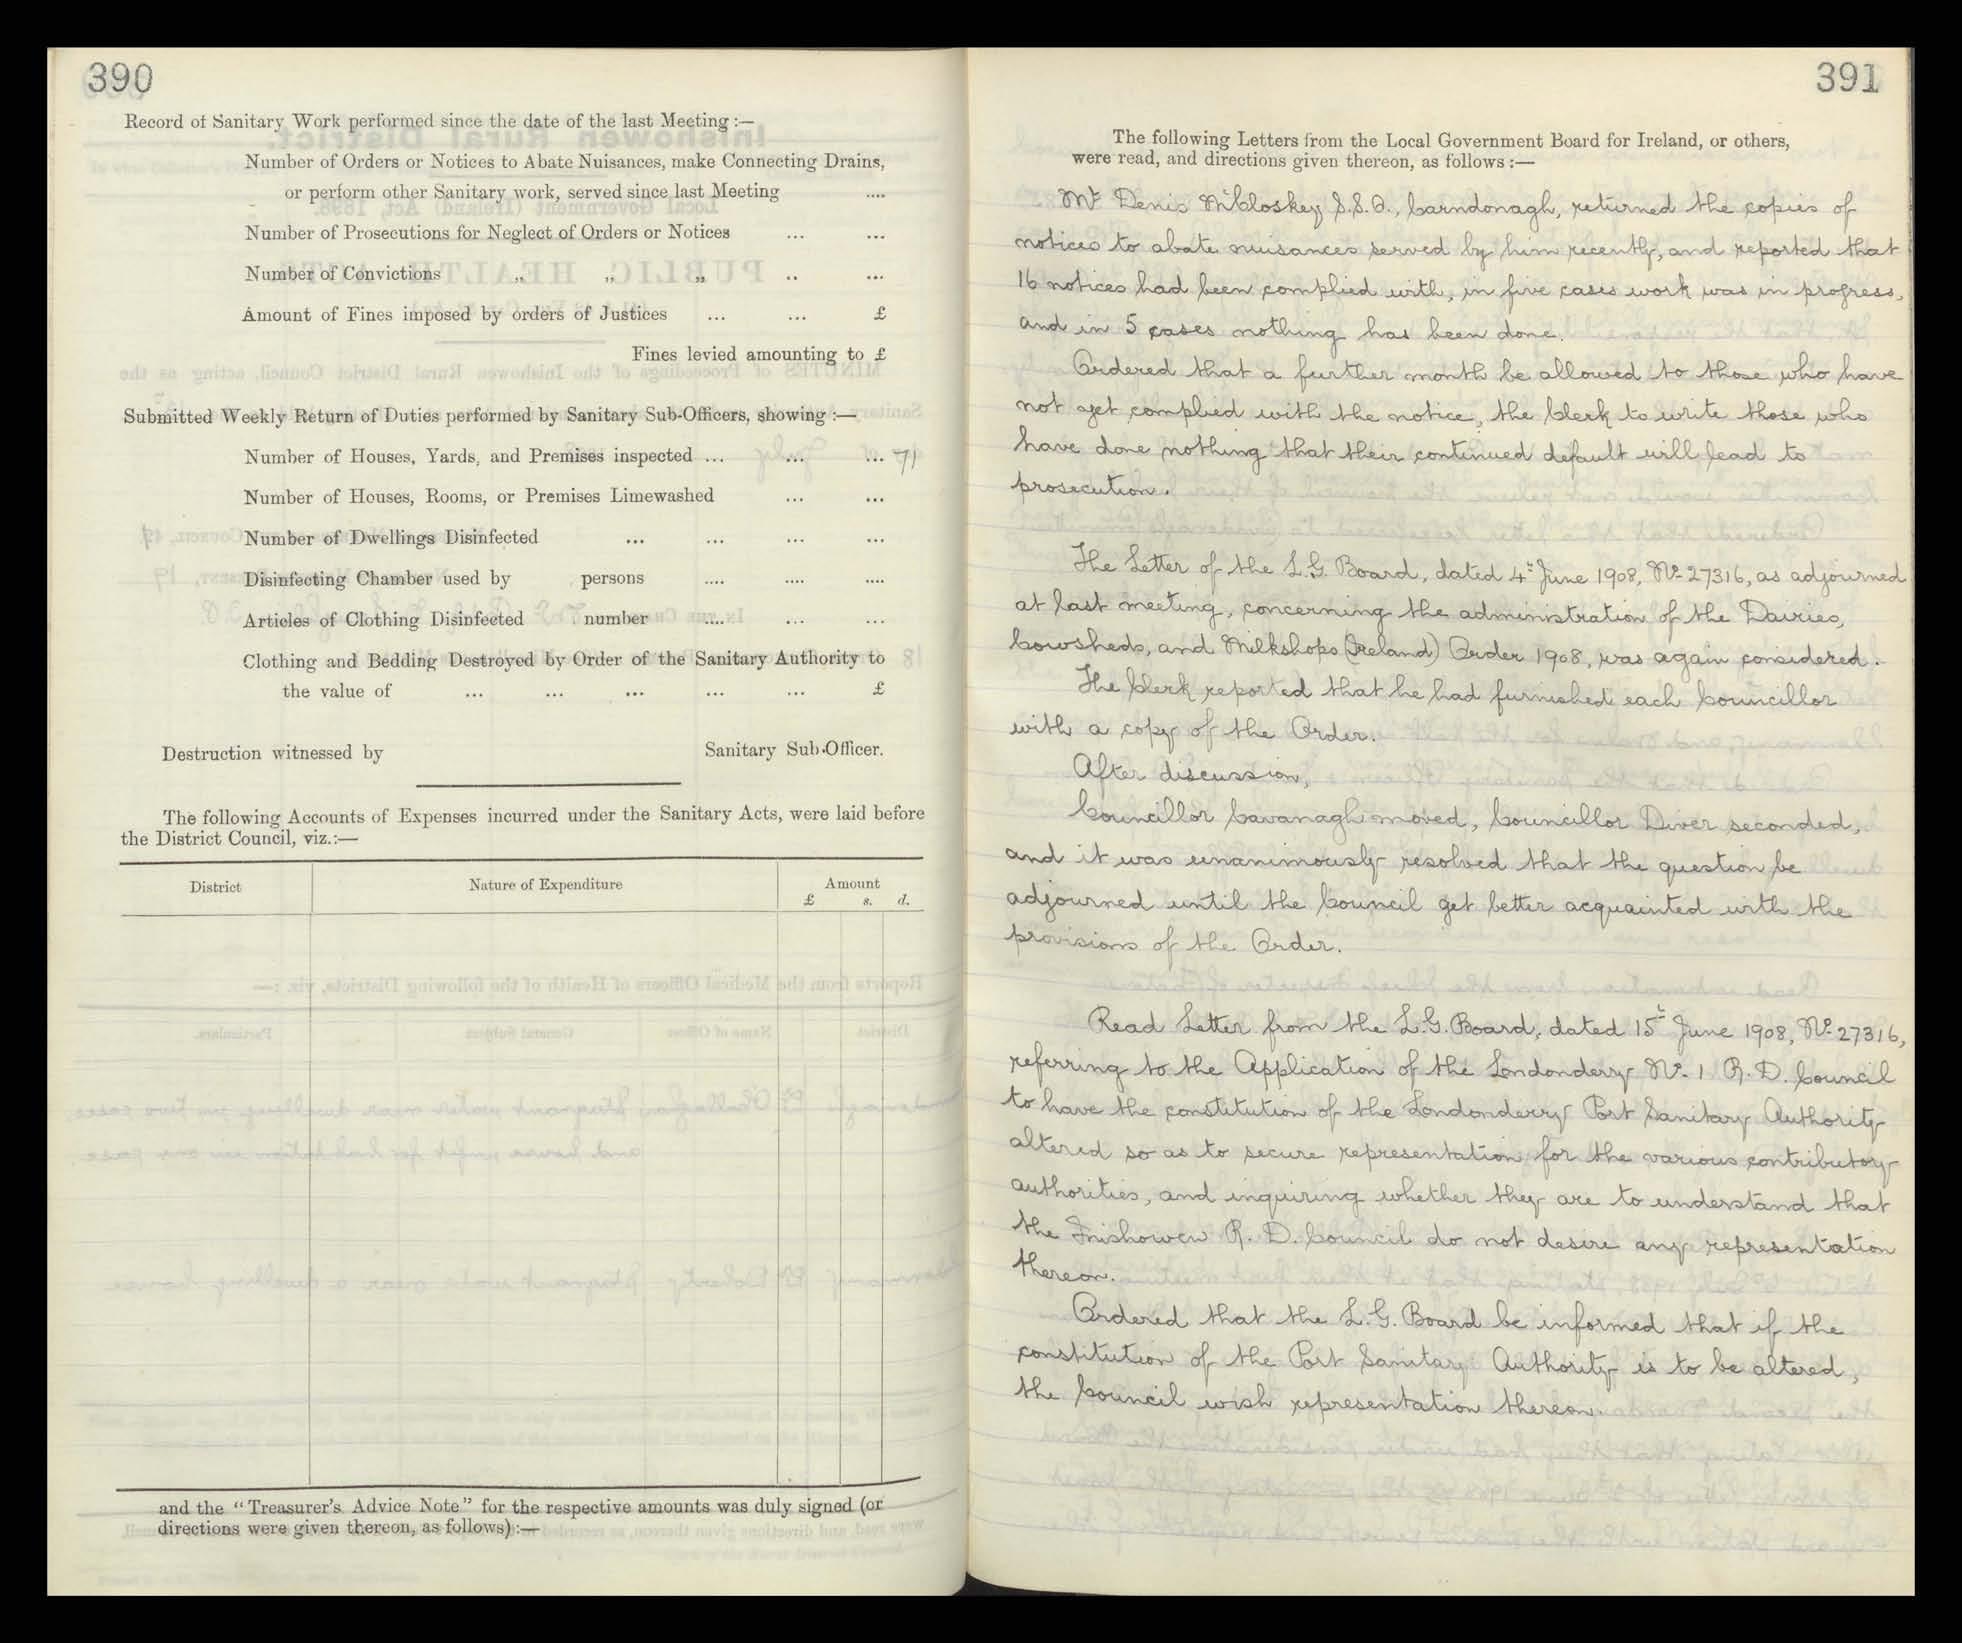 390
Record of Sanitary Work performed since the date of the last Meeting :—
Number of Orders or Notices to Abate Nuisances, make Connecting Drains,
or perform other Sanitary work, served since last Meeting ....
Number of Prosecutions for Neglect of Orders or Notices ... ...
Number of Convictions „ „ „ .. ...
Amount of Fines imposed by orders of Justices ... ... £
Fines levied amounting to £
Submitted Weekly Return of Duties performed by Sanitary Sub-Officers, showing :—
Number of Houses, Yards, and Premises inspected ... ... ... 71
Number of Houses, Rooms, or Premises Limewashed ... ...
Number of Dwellings Disinfected ... ... ... ...
Disinfecting Chamber used by persons .... .... ....
Articles of Clothing Disinfected number .... ... ...
Clothing and Bedding Destroyed by Order of the Sanitary Authority to
the value of ... ... ... ... ... £
Destruction witnessed by Sanitary Sub-Officer.
The following Accounts of Expenses incurred under the Sanitary Acts, were laid before
the District Council, viz.:—
District Nature of Expenditure Amount
£ s. d.
and the "Treasurer's Advice Note" for the respective amounts was duly signed (or
directions were given thereon, as follows) :—
391
The following Letters from the Local Government Board for Ireland, or others,
were read, and directions given thereon, as follows :—
Mr Denis McCloskey S.S.O., Carndonagh, returned the copies of
notices to abate nuisances served by him recently, and reported that
16 notices had been complied with, in five cases work was in progress,
and in 5 cases nothing has been done.
Ordered that a further month be allowed to those who have
not yet complied with the notice, the Clerk to write those who
have done nothing that their continued default will lead to
prosecution.
The Letter of the L.G. Board, dated 4th June 1908, No 27316, as adjourned
at last meeting, concerning the administration of the Dairies,
Cowsheds, and Milkshops (Ireland) Order 1908, was again considered.
The Clerk reported that he had furnished each Councillor
with a copy of the Order.
After discussion,
Councillor Cavanagh moved, Councillor Diver seconded,
and it was unanimously resolved that the question be
adjourned until the Council get better acquainted with the
provisions of the Order.
Read Letter from the L.G. Board, dated 15th June 1908, No 27316,
referring to the Application of the Londonderry No 1 R. D. Council
to have the constitution of the Londonderry Port Sanitary Authority
altered so as to secure representation for the various contributory
authorities, and inquiring whether they are to understand that
the Inishowen R. D. Council do not desire any representation
thereon.
Ordered that the L.G. Board be informed that if the
constitution of the Port Sanitary Authority is to be altered,
the Council wish representation thereon.